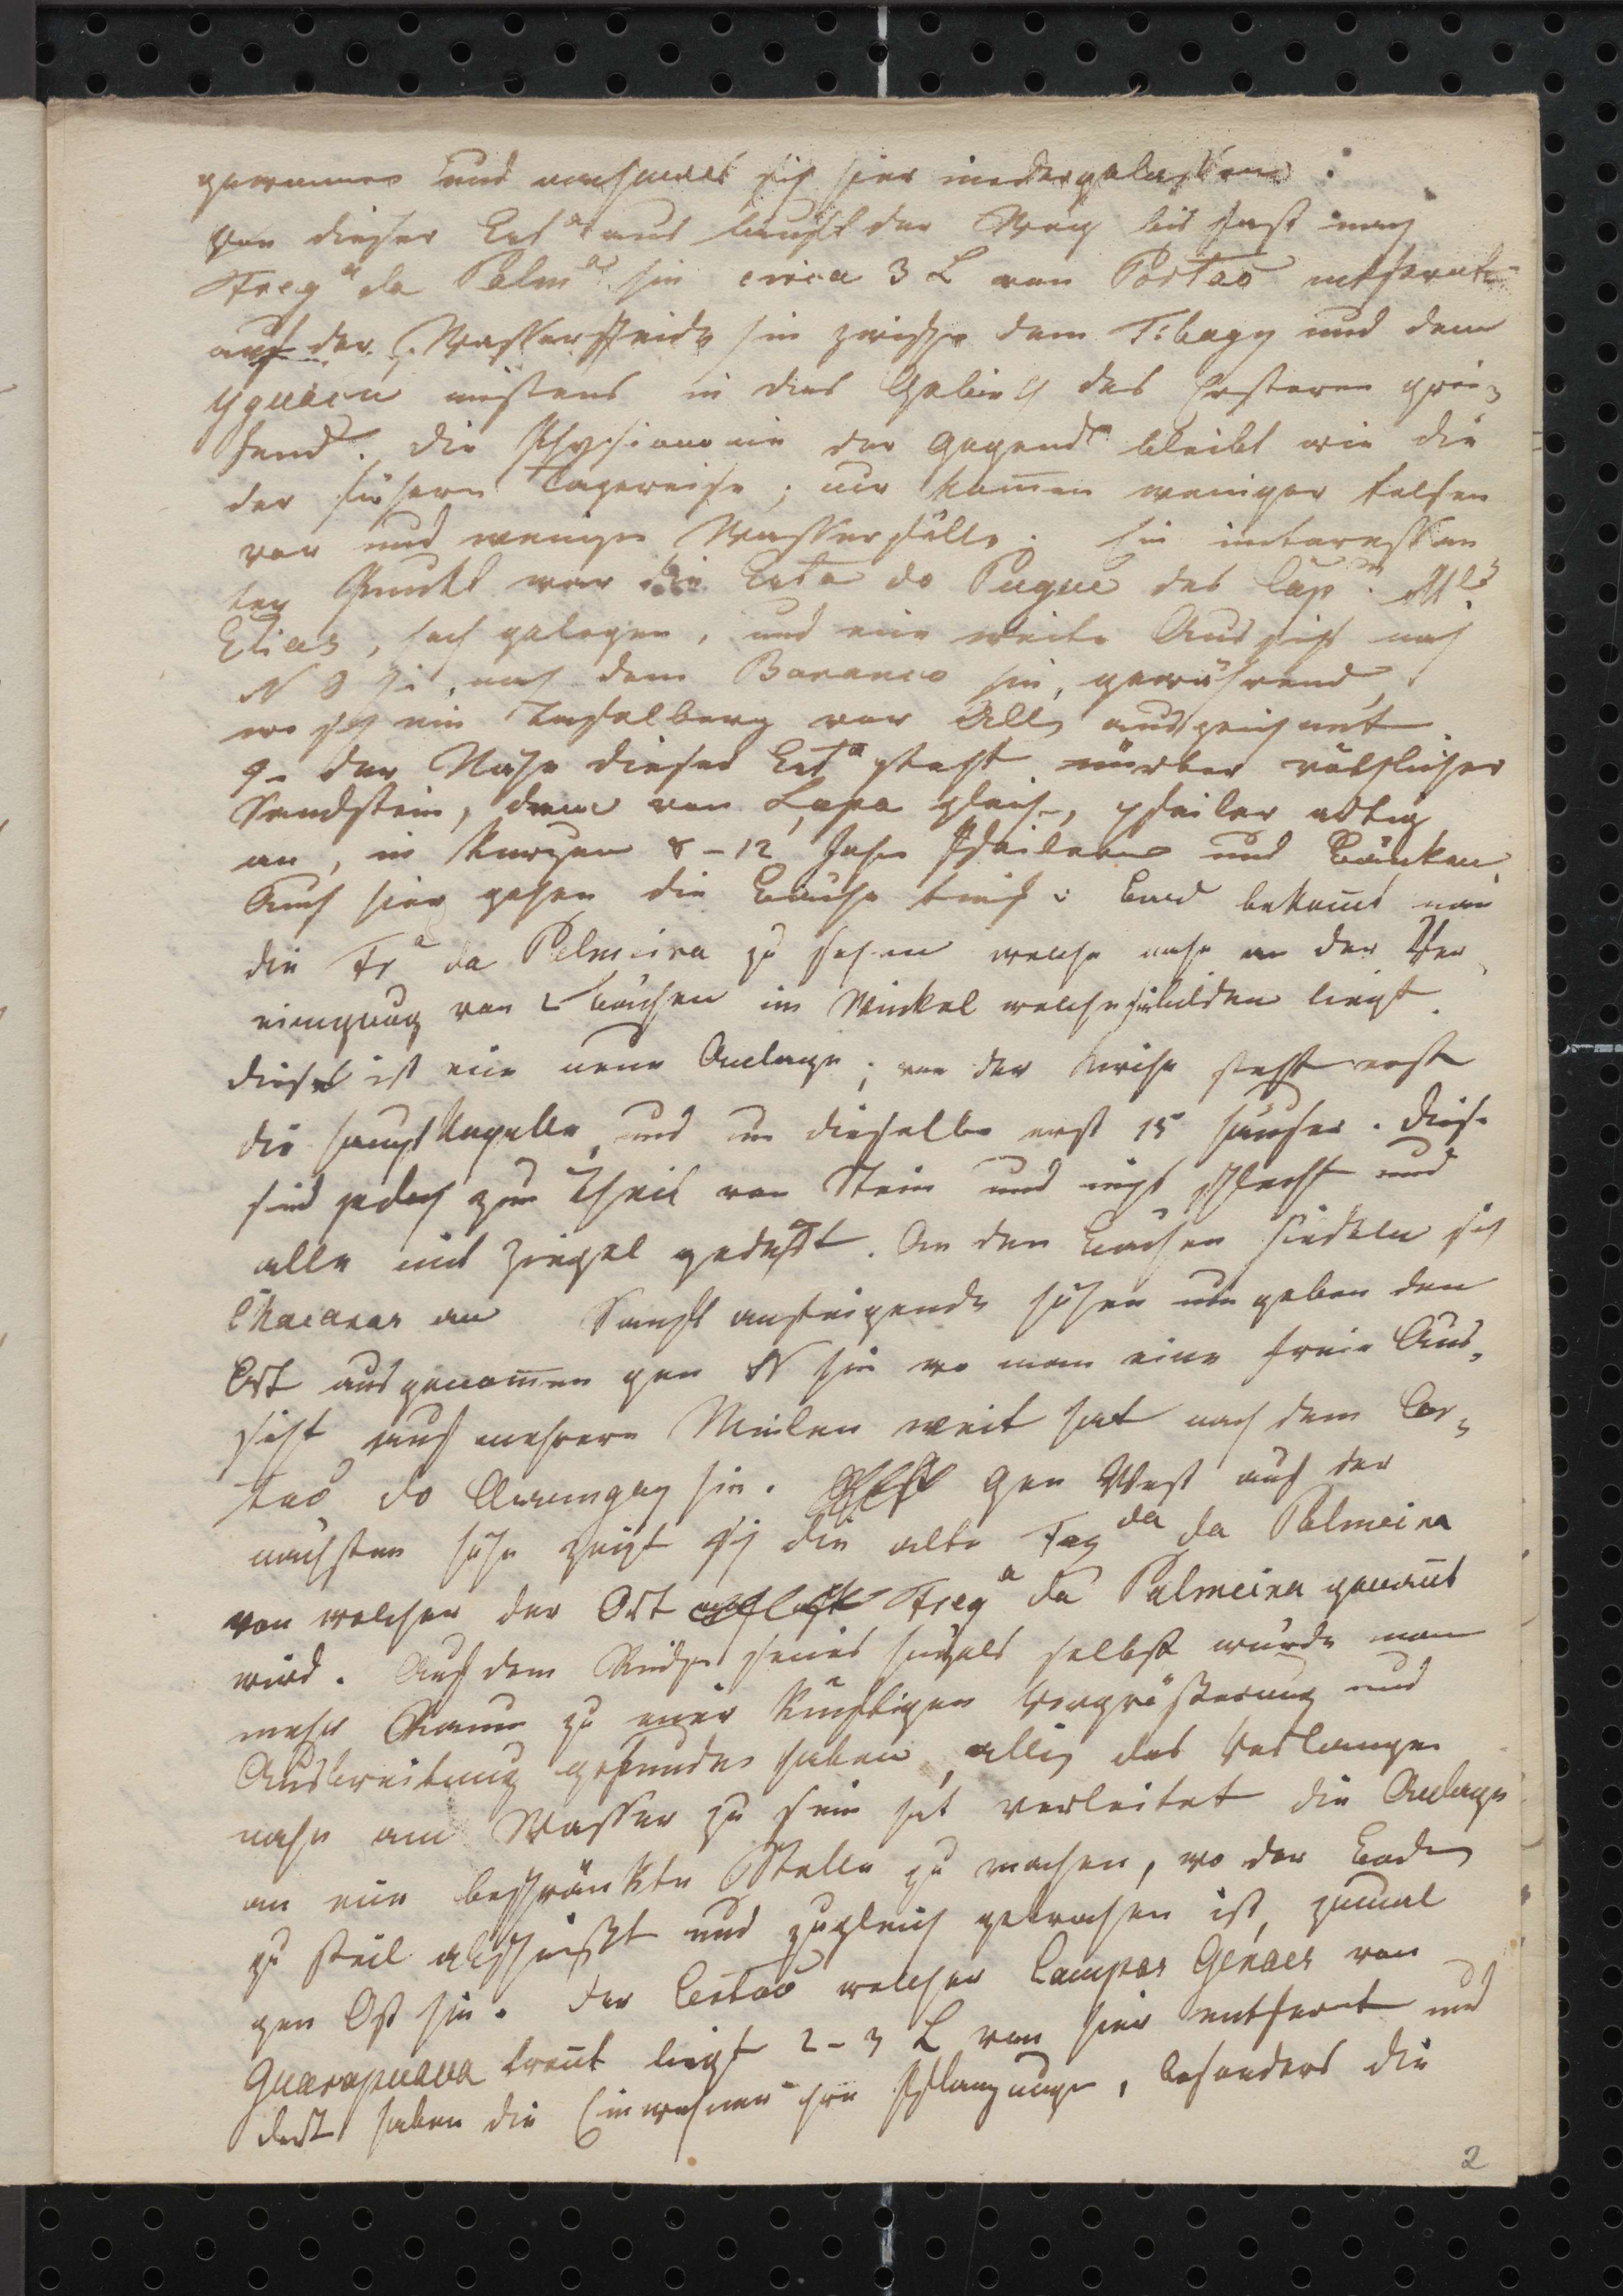 gewonnen und nachmals sich hier niedergelassen.
Von dieser Est.ª aus läuft der Weg bis fast nach
Freg.ª da Palm.ª hin circa 3 L von Portaõ entfernt
auf der Wasserscheide hin zwische dem Tibagy und dem
Yguacu meistens in das Gebieth des Ersteren grei-
fend. Die Physionomie der Gegend bleibt wie die
der frühern Tagereise; nur kom̄en weniger Felsen
vor und wenige Wasserfälle. Ein interessan
ter Punkt war die Est.ª do Pugue des Cap.m M.l
Elias, hoch gelegen, und eine weite Aussicht nach
N O hin, nach dem Baranco hin, gewährend,
wo sich ein Tafelberg vor Allen auszeichnet.
In der Nähe dieser Est.ª steht mürber röthlicher
Sandstein, dem von Lapa gleich, pfeiler artig
an, in kurzen 8-12 hohen Pfeilern und Bänken.
Auch hier gehen die Bäche tief. Bald bekom̄t man
die Fr.ª da Palmeira zu sehen welche nahe an der Ver-
einigung von 2 Bächen im Winkel welchen sie bilden liegt.
Dieses ist eine neue Anlage; von der Kirche steht erst
die Hauptkapelle, und um dieselbe erst 15 Häuser. Diese
sind jedoch zum Theil von Stein und nicht schlecht und
alle mit Ziegel gedeckt. An den Bächen siedeln sich
Chacaras an Sanft ansteigende Höhen umgeben den
Ort ausgenom̄en gen N hin wo man eine freie Aus-
sicht auf mehrere Meilen weit hat nach dem Cer-
taõ do Assunguy hin. Gen West auf der
nächsten Höhe zeigt sich die alte Faz.da da Palmeira
von welcher der Ort Freg.ª da Palmeira genan̄t
wird. Auf dem Rücken jenes Hügels selbst würde man
mehr Raum zu einer künftigen Vergrößerung und
Ausbreitung gefunden haben, allein das Verlangen
nahe am Wasser zu sein hat verleitet die Anlage
an eine beschränkte Stelle zu machen, wo der Boden
zu steil abschießt und zugleich gebrochen ist, zumal
gen Ost hin. Der Certaõ welcher Campos Geraes von
Guarapuava tren̄t liegt 2-3 L von hier entfernt und
dort haben die Einwohner ihre Pflanzungen, besonders die
2